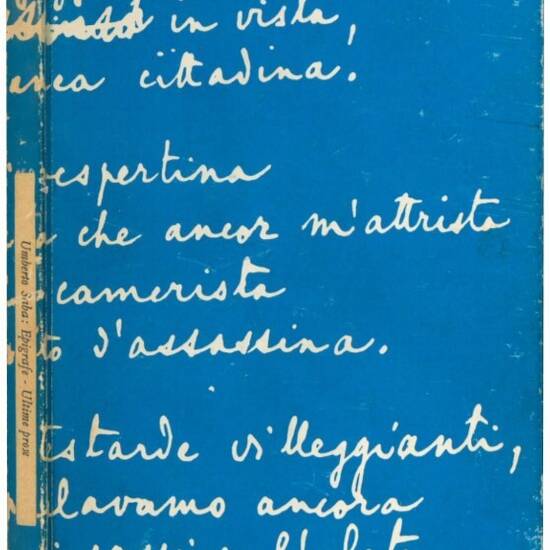 in vista,
anca cittadina.
espertina
che ancor m'attrista
camerista
to d'assassina.
estarde villeggianti,
lavamo ancora
Umberto Saba: Epigrafe - Ultime prose